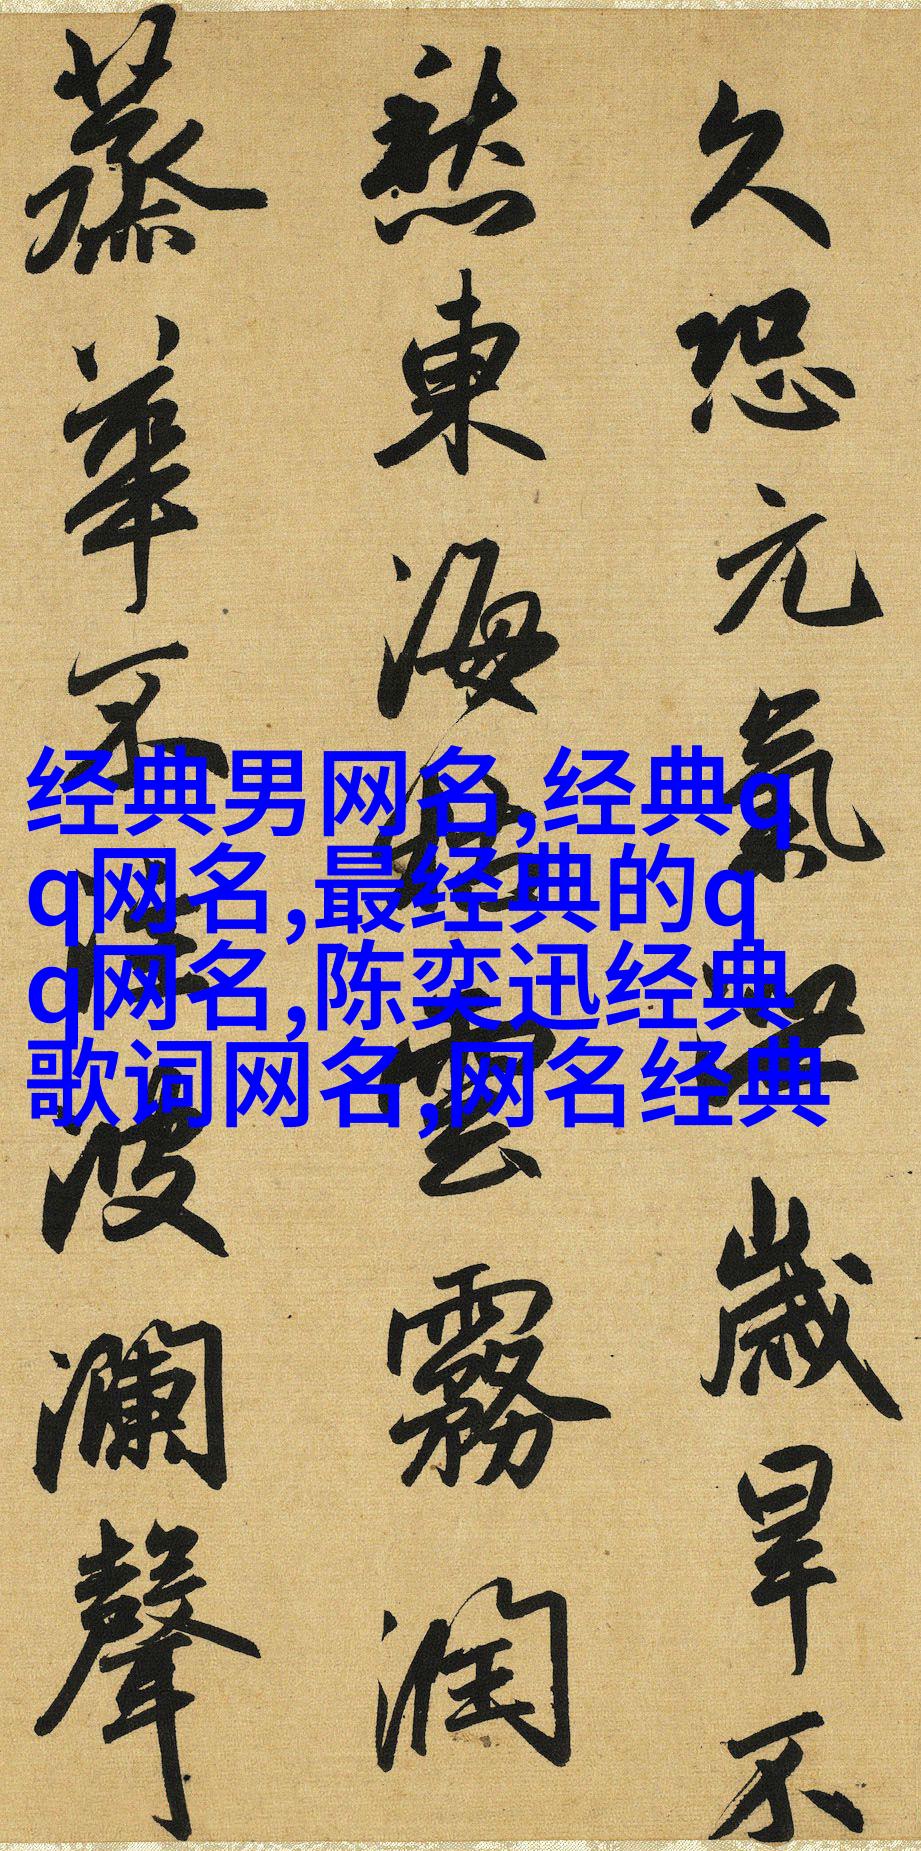 久恐元氣泄歲旱不
愁東海枯雲霧潤
蒸華不注波瀾聲
经典男网名,经典q
q网名,最经典的q
q网名,陈奕迅经典
歌词网名,网名经典